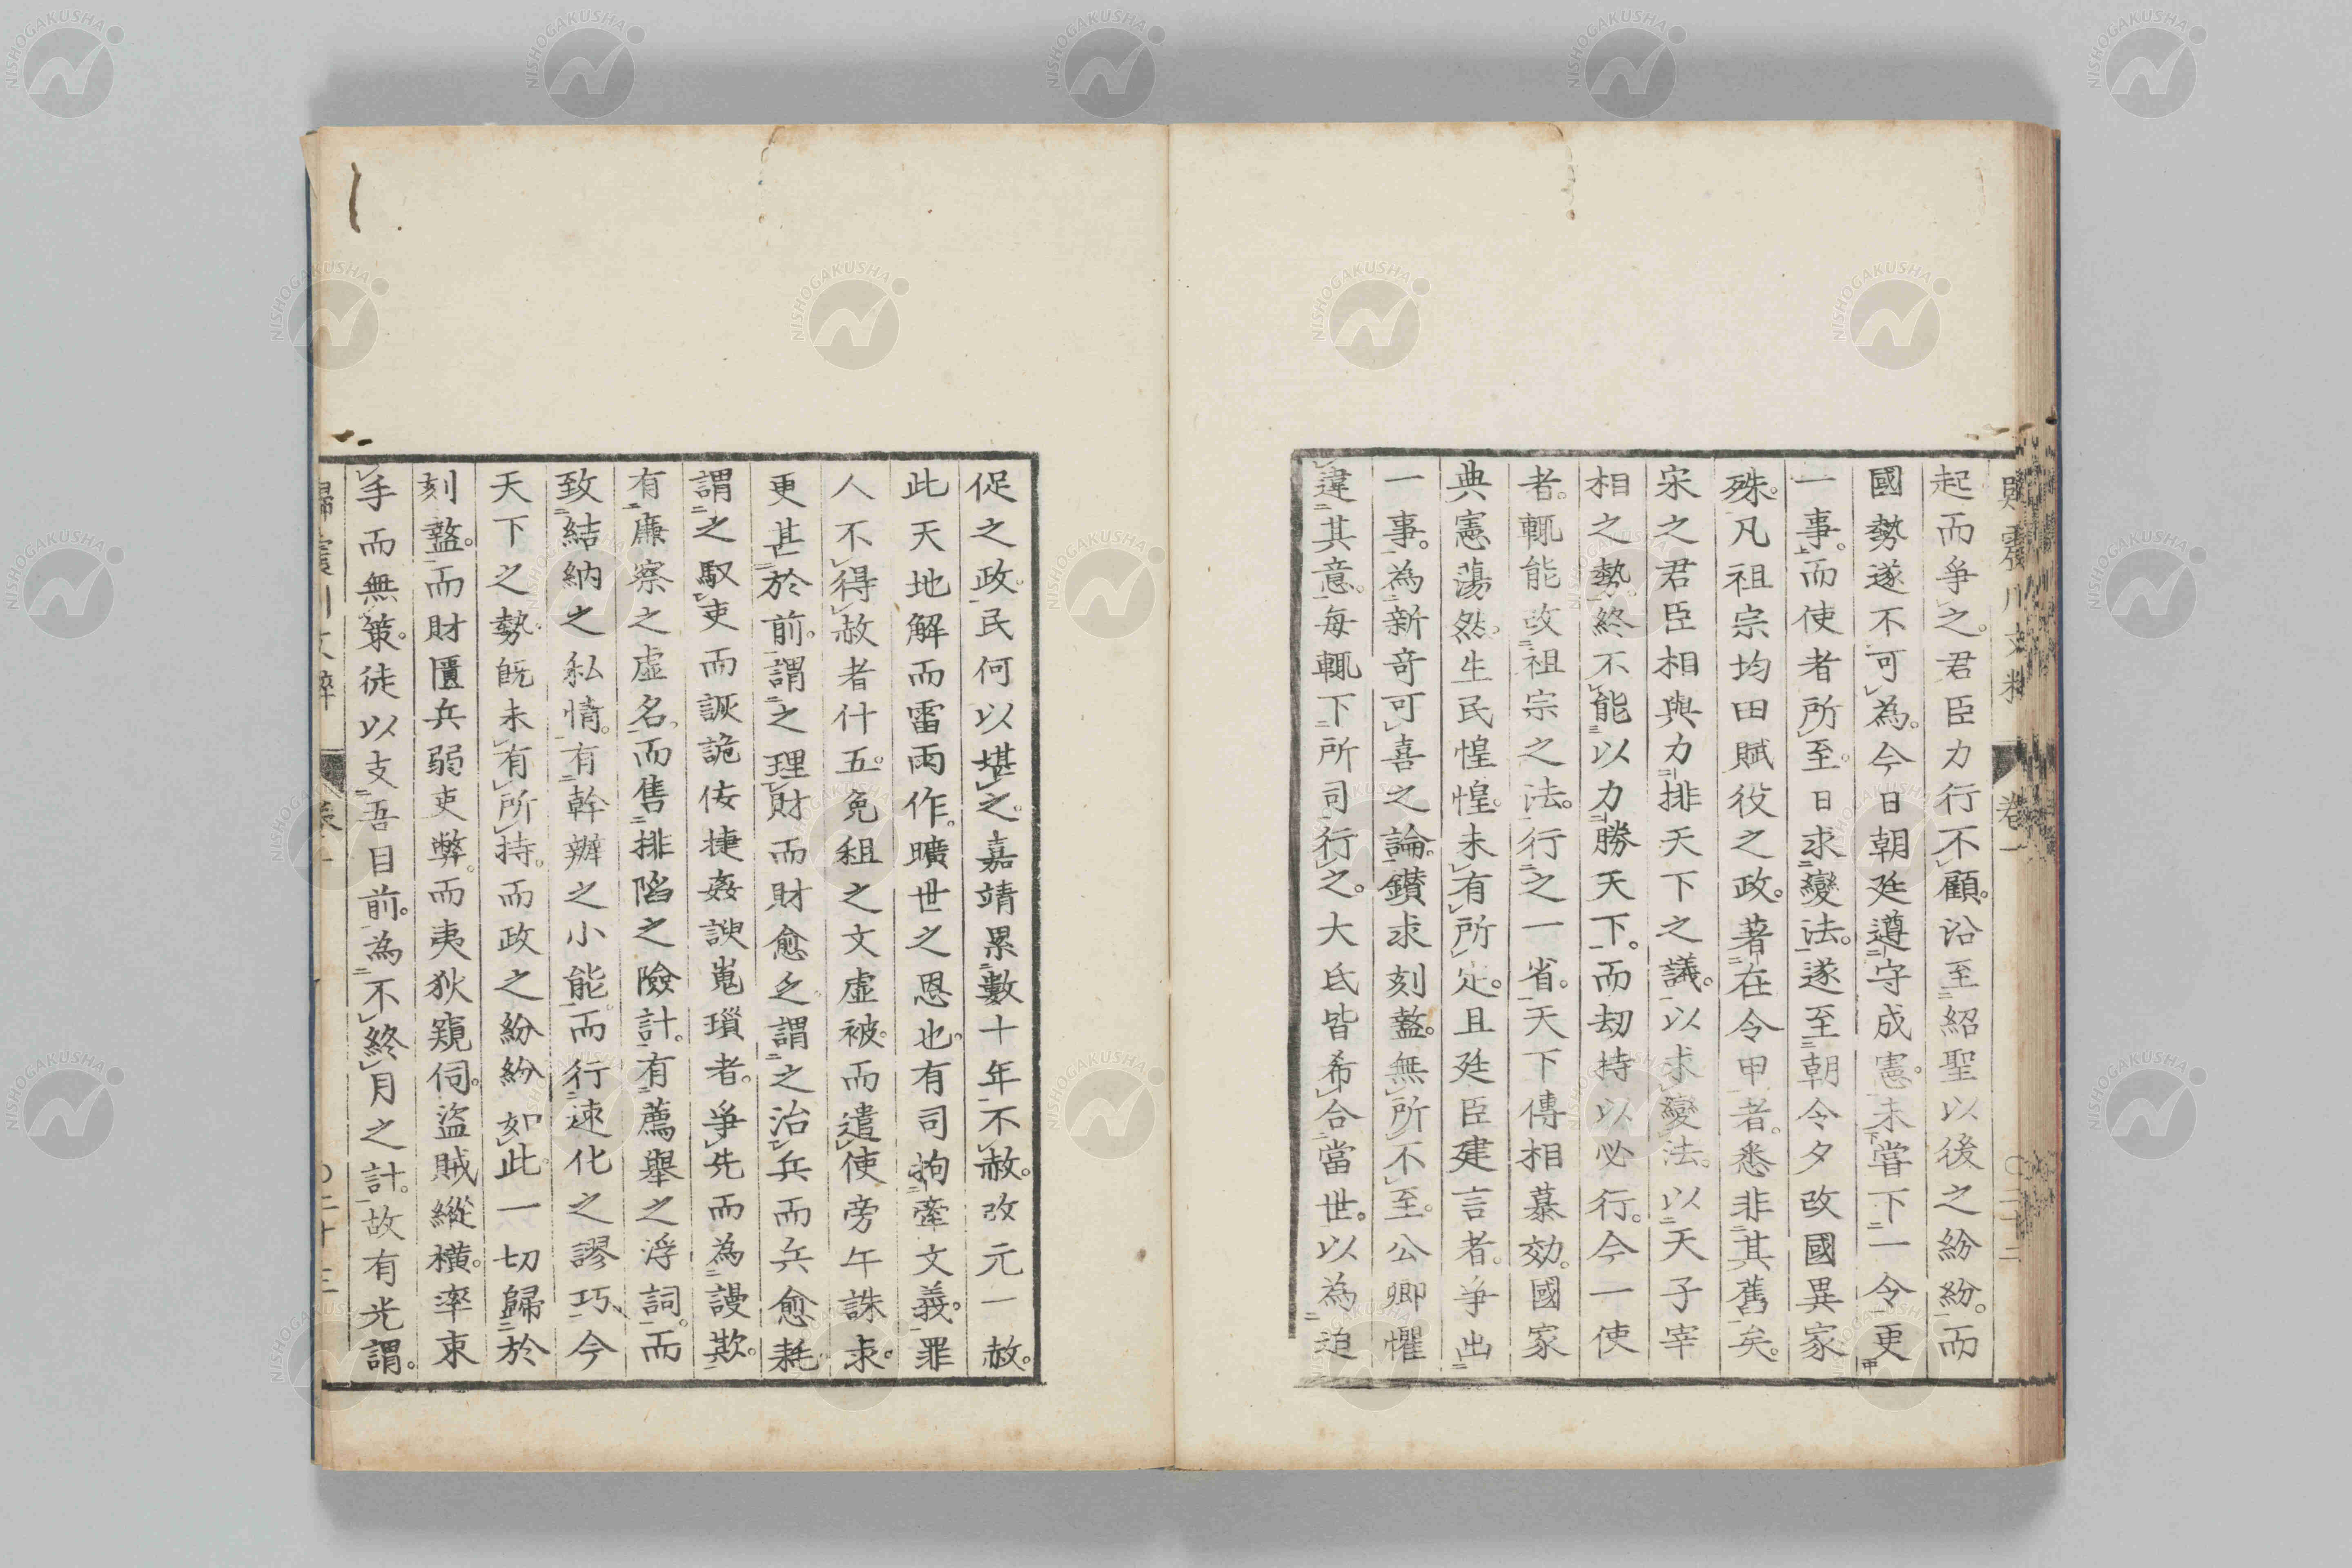 歸震川文粹 卷一 〇二十二
起而爭之。君臣力行不顧。沿至紹聖以後之紛紛。而
國勢遂不可為。今日朝廷遵守成憲。未嘗下一令更
一事。而使者所至。日求變法。遂至朝令夕改國異家
殊。凡祖宗均田賦役之政。著在令甲者。悉非其舊矣。
宋之君臣相與力排天下之議。以求變法。以天子宰
相之勢。終不能以力勝天下。而劫持以必行。今一使
者。輒能改祖宗之法。行之一省。天下傳相慕効。國家
典憲蕩然。生民惶惶。未有所定。且廷臣建言者。爭出
一事。為新奇可喜之論。鑚求刻盩。無所不至。公卿懼
違其意。每輒下所司行之。大氐皆希合當世。以為迫
促之政。民何以堪之。嘉靖累數十年不赦。改元一赦。
此天地解而雷雨作。曠世之恩也。有司拘牽文義。罪
人不得赦者什五。免租之文虛被。而遣使旁午誅求。
更甚於前。謂之理財而財愈乏。謂之治兵而兵愈耗。
謂之馭吏而誕詭佞捷姦諛嵬瑣者。爭先而為謾欺。
有廉察之虛名。而售排陷之險計。有薦舉之浮詞。而
致結納之私情。有幹辦之小能。而行速化之謬巧。今
天下之勢。既未有所持。而政之紛紛如此。一切歸於
刻盩。而財匱兵弱吏弊。而夷狄窺伺。盜賊縱橫。率束
手而無策。徒以支吾目前。為不終月之計。故有光謂。
歸震川文粹 卷一 〇二十三
NISHOGAKUSHA